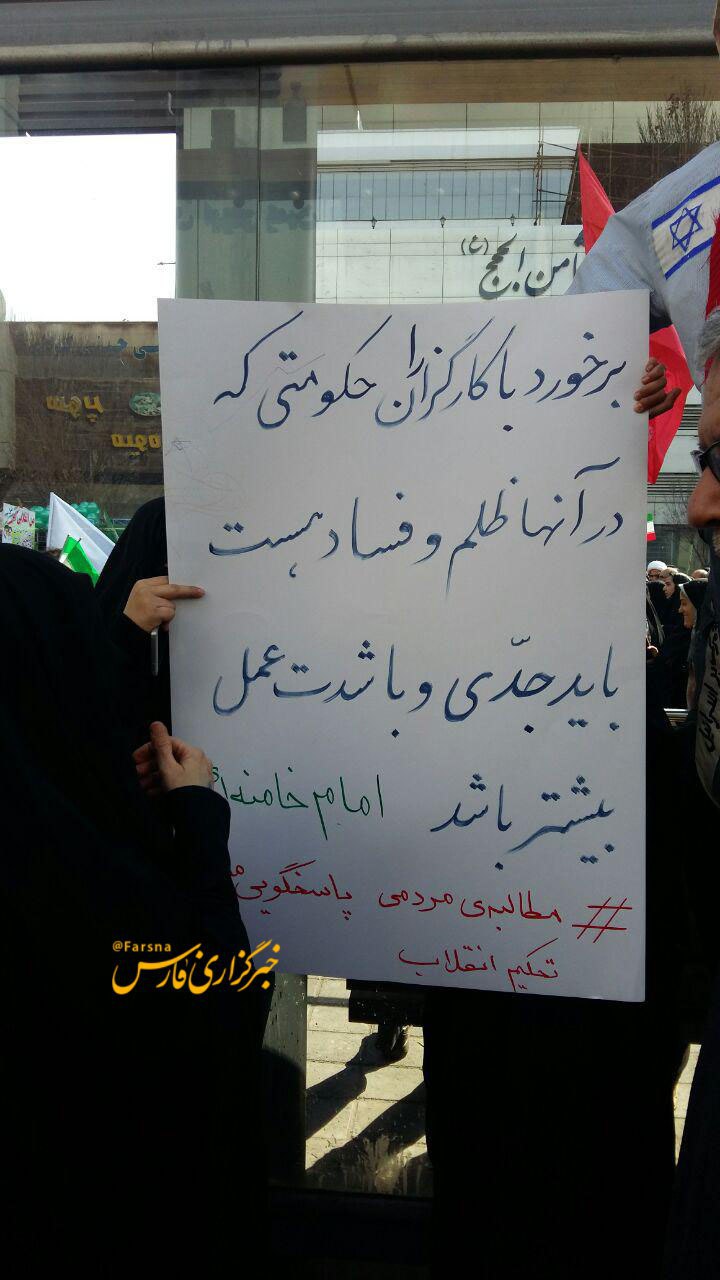 ثامن الحجج (ع)
برخورد با کارگزاران حکومتی که
در آنها ظلم و فساد هست
باید جدّی و با شدت عمل
بیشتر باشد
امام خامنه‌ای
# مطالبه‌ی مردمی پاسخگویی
تحکیم انقلاب
@Farsna
خبرگزاری فارس